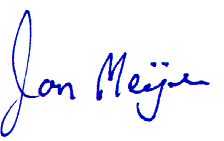 Jan Meijer